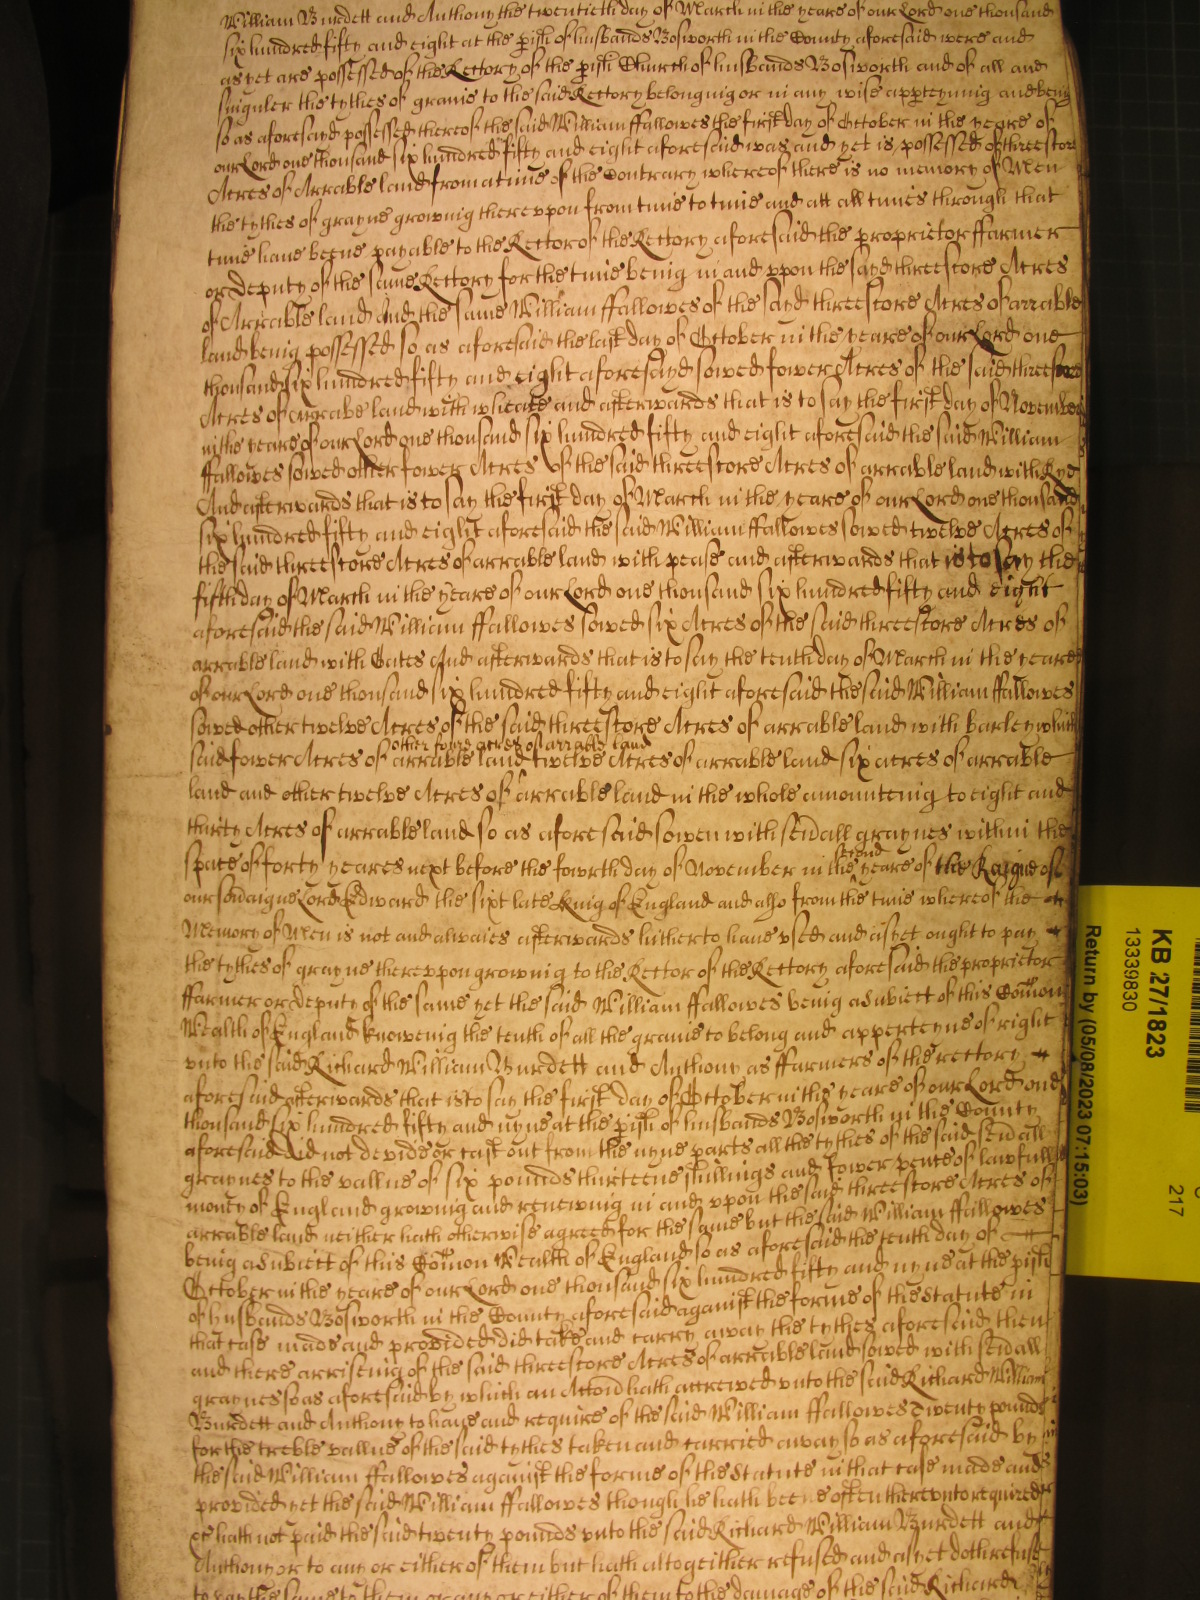 William Burdett and Anthony the twentieth day of March in the yeare of our Lord one thousand
six hundred fifty and eight at the pish of husbands Bosworth in the County aforesaid were and
as yet are possessed of the Rectory of the pish Church of husbands Bosworth and of all and
singuler the tythes of graine to the said Rectory belonging or in any wise apperteyning and being
so as aforesayd possessed thereof the said William ffallowes the first day of October in the yeare of
our Lord one thousand six hundred fifty and eight aforesaid was and yet is possessed of threescore
Acres of Arrable land from a time of the Contrary whereof there is no memory of Men
the tythes of grayne growing therevpon from time to time and att all times through that
time haue beene payable to the Rector of the Rectory aforesaid the proprietor ffarmer
or deputy of the same Rectory for the time being in and vpon the sayd threescore Acres
of Arrable land And the same William ffallowes of the sayd threescore Acres of arrable
land being possessed so as aforesaid the last day of October in the yeare of our Lord one
thousand six hundred fifty and eight aforesayd sowed fower Acres of the said threescore
Acres of arrable land with wheate and afterwards that is to say the first day of November
in the yeare of our Lord one thousand six hundred fifty and eight aforesaid the said William
ffallowes sowed other fower Acres of the said threescore Acres of arrable land with Rye
And afterwards that is to say the first day of March in the yeare of our Lord one thousand
six hundred fifty and eight aforesaid the said William ffallowes sowed twelve Acres of
the said threescore Acres of arrable land with pease and afterwards that is to say the
fifth day of March in the yeare of our Lord one thousand six hundred fifty and eight
aforesaid the said William ffallowes sowed six Acres of the said threescore Acres of
arrable land with Oates And afterwards that is to say the tenth day of March in the yeare
of our Lord one thousand six hundred fifty and eight aforesaid the said William ffallowes
sowed other twelve Acres of the said threescore Acres of arrable land with barley which
other fower acres of arrable land
said fower Acres of arrable land twelve Acres of arrable land six acres of arrable
land and other twelve Acres of arrable land in the whole amounteing to eight and
thirty Acres of arrable land so as aforesaid sowen with seuall graynes within the
space of forty yeares next before the fowrth day of November in the second yeare of the Raigne of
our soueraigne Lord Edward the sixt late King of England and also from the time whereof the
Memory of Men is not and alwaies afterwards hitherto haue vsed and as yet ought to pay
the tythes of grayne therevpon growing to the Rector of the Rectory aforesaid the proprietor
ffarmer or deputy of the same yet the said William ffallowes being a Subiect of this Comon
Wealth of England knoweing the tenth of all the graine to belong and apperteyne of right
vnto the said Richard William Burdett and Anthony as ffarmers of the rectory
aforesaid afterwards that is to say the first day of October in the yeare of our Lord one
thousand six hundred fifty and nyne at the pish of husbands Bosworth in the County
aforesaid did not devide or cast out from the nyne parts all the tythes of the said seuall
graynes to the vallue of six pounds thirteene shillings and fower pence of lawfull
money of England growing and renewing in and vpon the said threescore Acres of
arrable land neither hath otherwise agreed for the same but the said William ffallowes
being a Subiect of this Comon Wealth of England so as aforesaid the tenth day of
October in the yeare of our Lord one thousand six hundred fifty and nyne at the pish
of husbands Bosworth in the County aforesaid against the forme of the Statute in
that case made and provided did take and carry away the tythes aforesaid then
and there arriseing of the said threescore Acres of arrable land sowed with seuall
graynes so as aforesaid by which an Accion hath accrewed vnto the said Richard William
Burdett and Anthony to haue and require of the said William ffallowes Twenty pounds
for the treble vallue of the said tythes taken and carried away so as aforesaid by
the said William ffallowes against the forme of the Statute in that case made and
provided yet the said William ffallowes though he hath beene often therevnto required
hath not paid the said twenty pounds vnto the said Richard William Burdett and
Anthony or to any or either of them but hath altogeither refused and as yet doth refuse
to pay the same to them or any or either of them to the damage of the said Richard
KB 27/1823
13339830
Return by (05/08/2023 07:15:03)
217